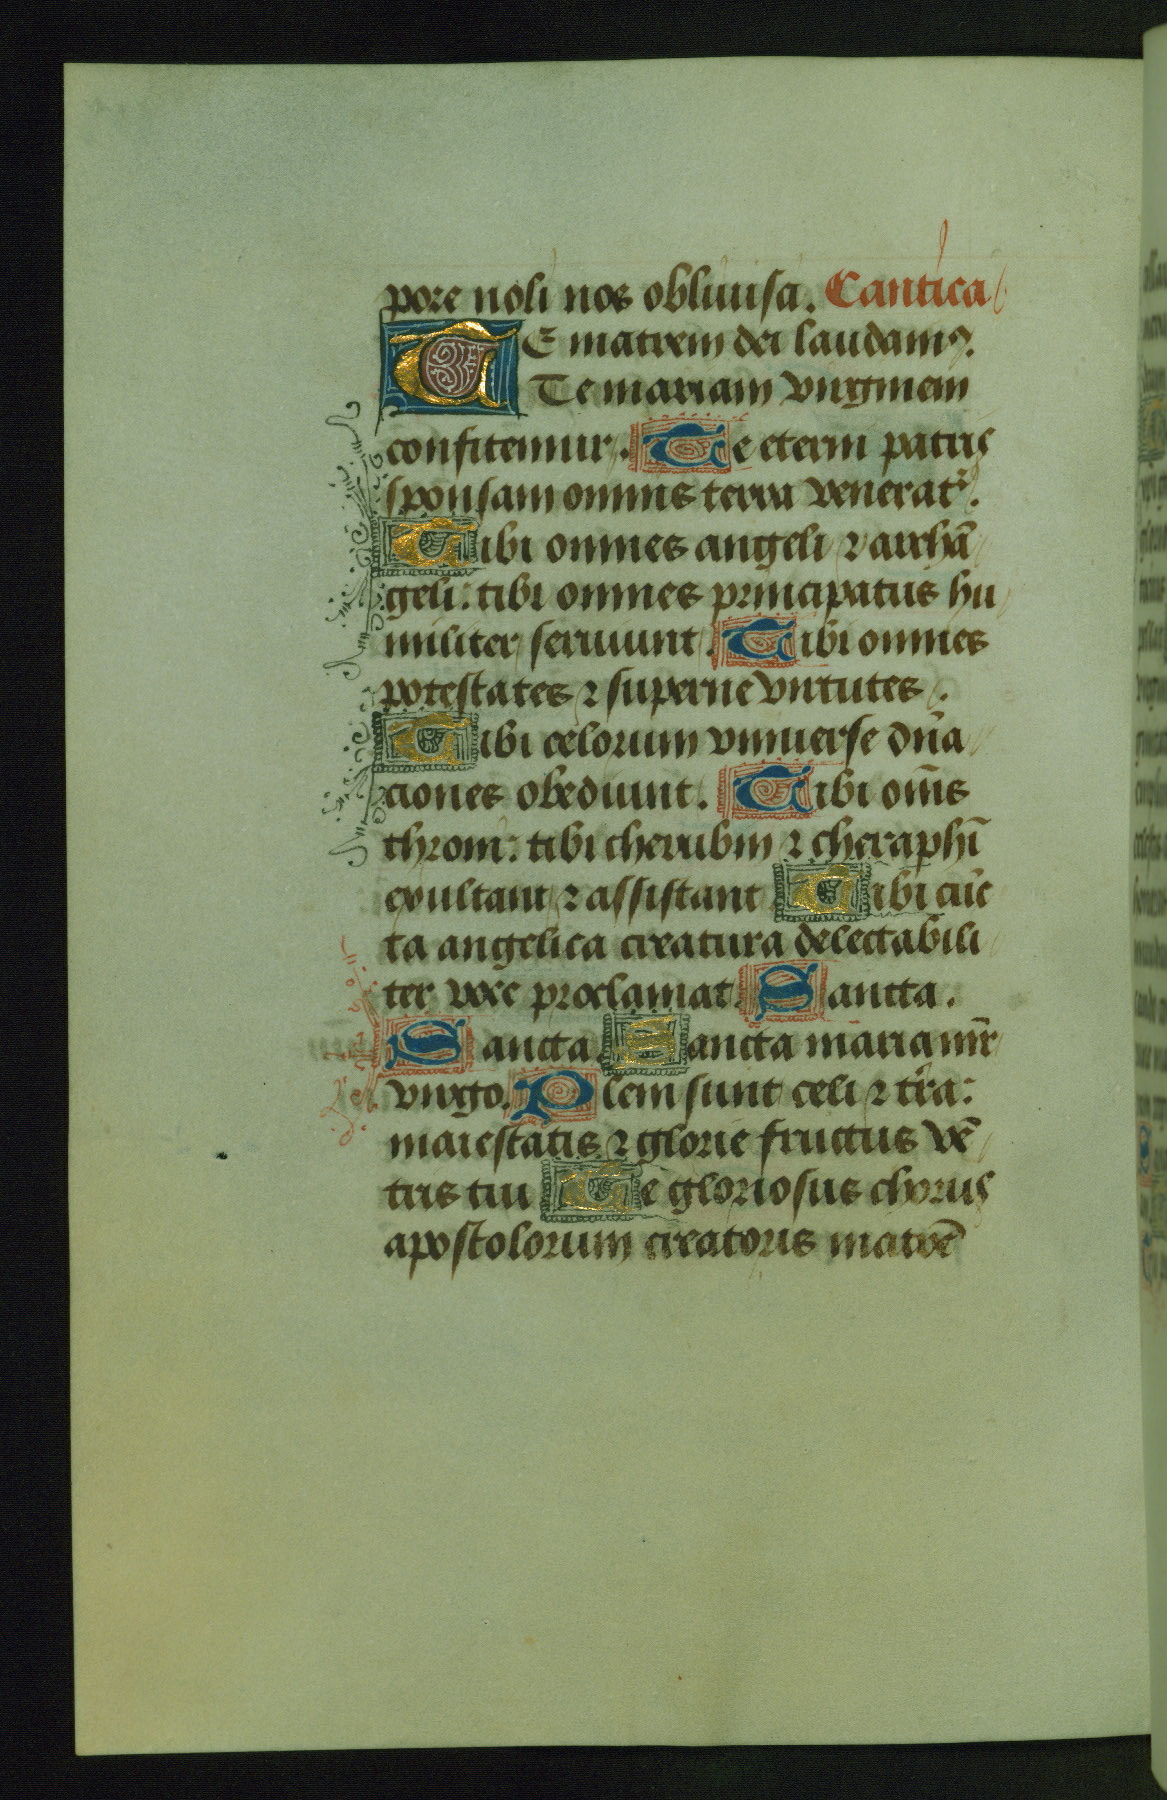 pore noli nos obliuisci. Cantica
TE matrem dei laudamꝰ.
Te mariam virginem
confitemur. Te eterni patris
sponsam omnis terra venerat᷑.
Tibi omnes angeli ⁊ archã
geli: tibi omnes principatus hu
militer seruiunt. Tibi omnes
potestates ⁊ superne virtutes.
Tibi celorum vniuerse dn̄a
ciones obediunt. Tibi om̄s
throni: tibi cherubin ⁊ cheraphī
exultant ⁊ assistant Tibi cūc
ta angelica creatura delectabili
ter voce proclamat. Sancta.
Sancta Sancta maria mr̄
virgo. Pleni sunt celi ⁊ tr̄a:
maiestatis ⁊ glorie fructus vē
tris tui Te gloriosus chorus
apostolorum creatoris matrē